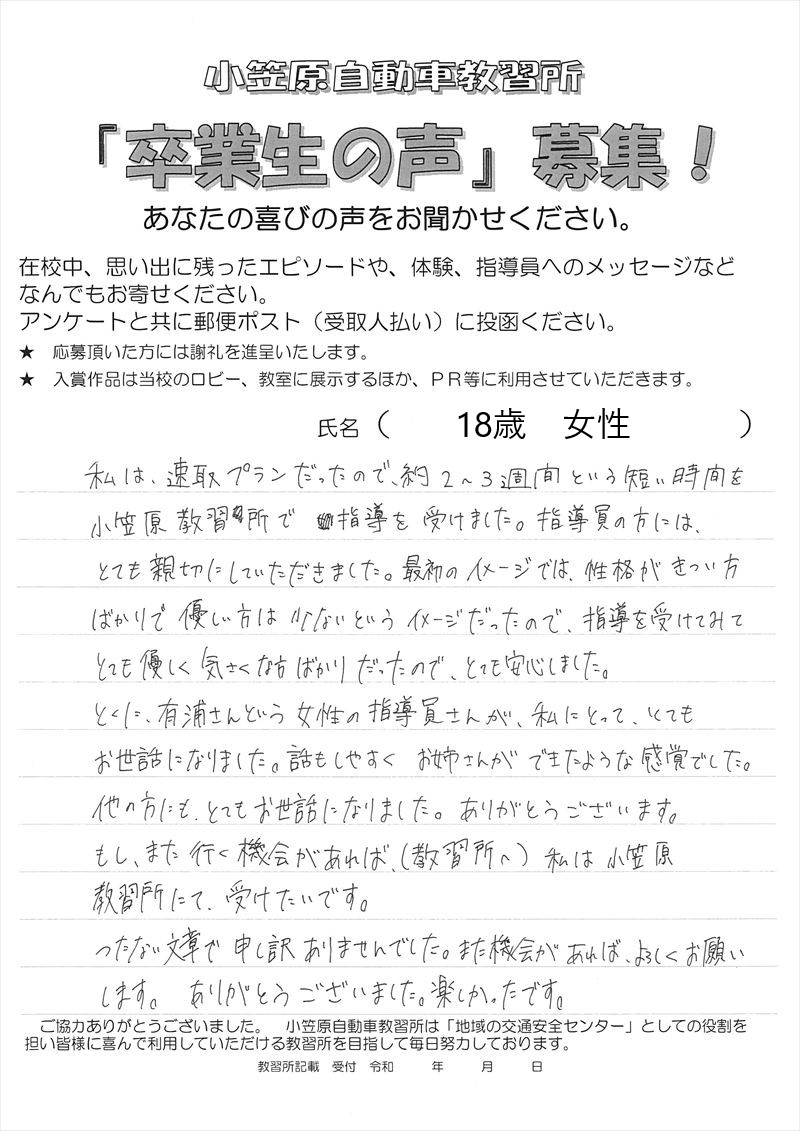 小笠原自動車教習所
「卒業生の声」募集！
あなたの喜びの声をお聞かせください。
在校中、思い出に残ったエピソードや、体験、指導員へのメッセージなど
なんでもお寄せください。
アンケートと共に郵便ポスト（受取人払い）に投函ください。
★　応募頂いた方には謝礼を進呈いたします。
★　入賞作品は当校のロビー、教室に展示するほか、ＰＲ等に利用させていただきます。
氏名（　18歳　女性　）
私は、速取プランだったので、約2～3週間という短い時間を
小笠原教習所で指導を受けました。指導員の方には、
とても親切にしていただきました。最初のイメージでは、性格がきつい方
ばかりで優しい方は少ないというイメージだったので、指導を受けてみて
とても優しく気さくな方ばかりだったので、とても安心しました。
とくに、有浦さんという女性の指導員さんが、私にとって、とても
お世話になりました。話もしやすく　お姉さんができたような感覚でした。
他の方にも、とてもお世話になりました。ありがとうございます。
もし、また行く機会があれば、（教習所へ）私は小笠原
教習所にて、受けたいです。
つたない文章で申し訳ありませんでした。また機会があれば、よろしくお願い
します。　ありがとうございました。楽しかったです。
ご協力ありがとうございました。　小笠原自動車教習所は「地域の交通安全センター」としての役割を
担い皆様に喜んで利用していただける教習所を目指して毎日努力しております。
教習所記載　受付　令和　　年　　月　　日